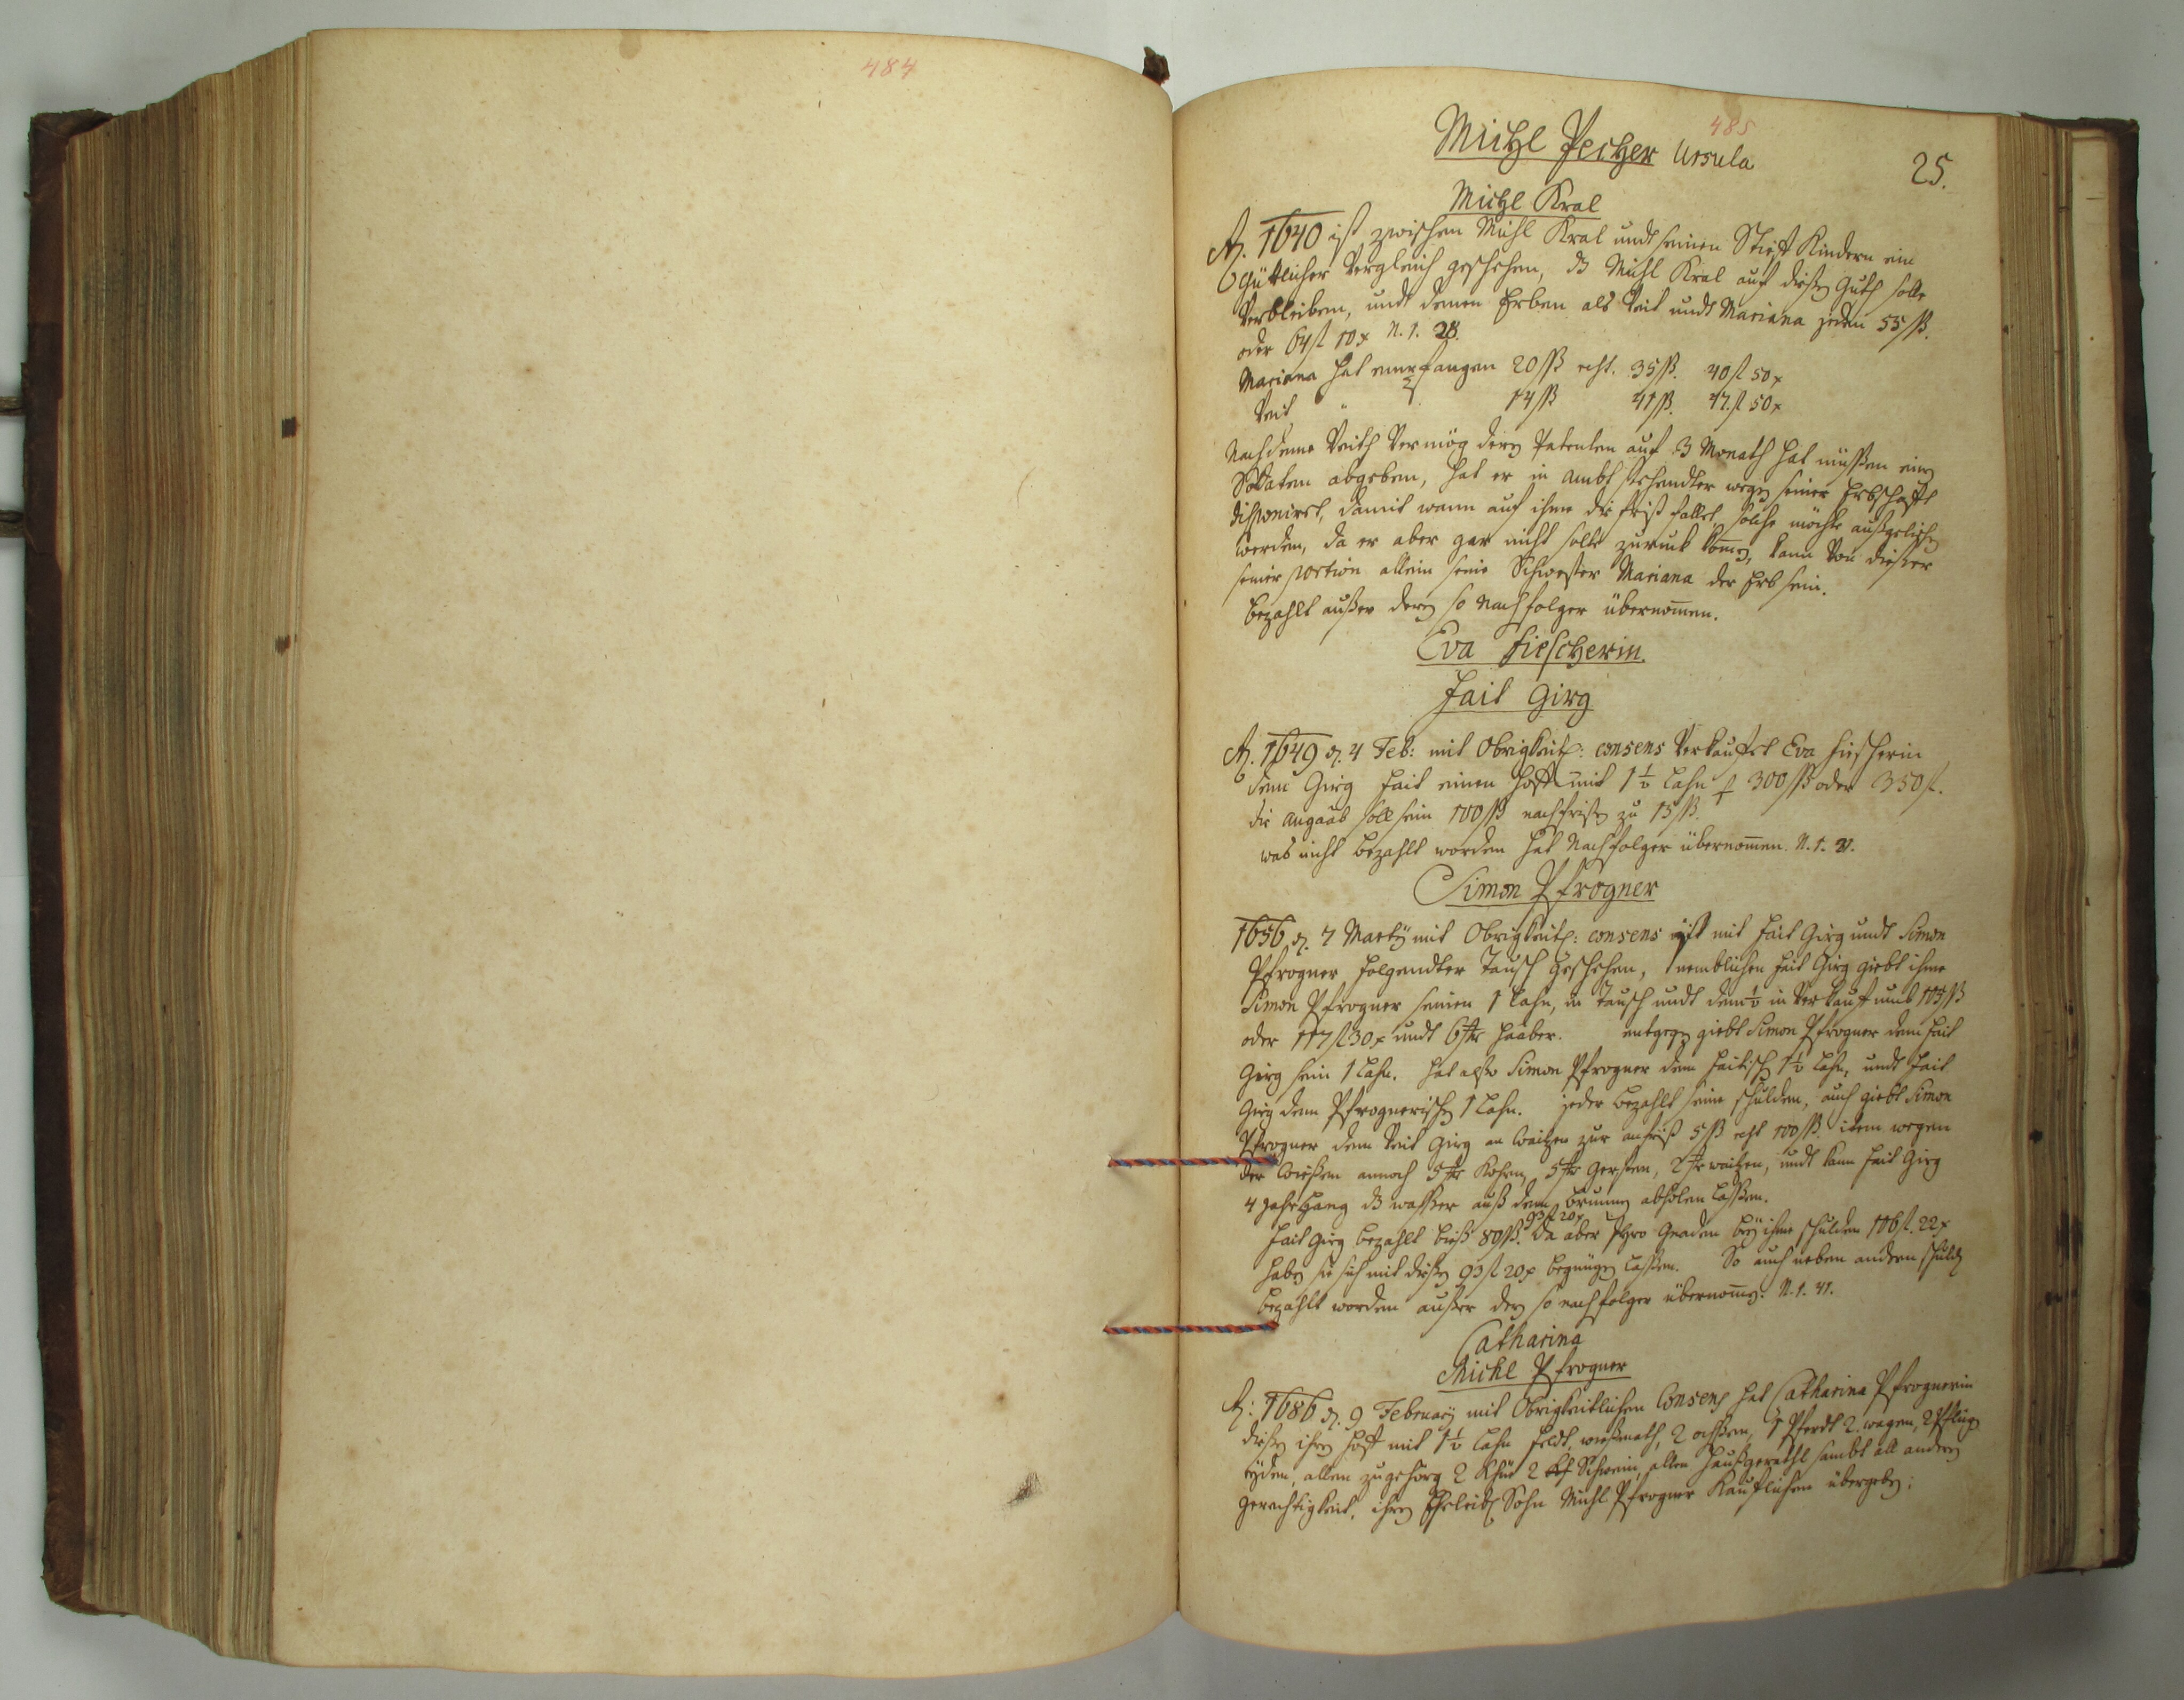 484
485
Michl Pecher Ursula
25.
Michl Kral
Aō. 1640 ist zwischen Michl Kral undt seinen Stieff Kindern ein
Güttlicher Vergleich geschehen, dz Michl Kral auf diesen Guth solle
Verbleiben, undt denen Erben als Veit undt Mariana jeden 55 ß.
oder 64 fl 10 x N. 1. 28.
Mariana hat empfangen 20 ß rest. 35 ß. 40 fl 50 x
Veit " 14 ß 41 ß. 47. fl 50 x
Nachdeme Veith Vermög deren Patenten auf 3 Monath hat müssen einen
Soldaten abgeben, hat er in Ambt stehendter wegen seiner Erbschafft
disponiret, damit wann auf ihme die frist fallet, solche möchte außgeliehen
werden, da er aber gar nicht solte zuruck kom̄en, kann Von dieser
seiner portion allein seine Schwester Mariana der Erb sein.
bezahlt außer deren so Nachfolger übernom̄en.
Eva Fiescherin.
Hail Girg
Aō. 1649 den 4 Feb: mit Obrigkeitl: consens Verkauffet Eva Fiescherin
dem Girg Hail einen Hoff mit 1½ Lahn p 300 ß oder 350 fl.
die Angaab soll sein 100 ß nachfristen zu 15 ß.
was nicht bezahlt worden hat Nachfolger übernom̄en. N. 1. 21.
Simon Pfrogner
1656 den 7 Martÿ mit Obrigkeitl: consens ist mit Hail Girg undt Simon
Pfrogner folgendter Tausch geschehen, nemblichen Hail Girg giebt ihme
Simon Pfrogner seinen 1 Lahn, in Tausch undt den ½ in Verkauf umb
oder 117 fl 30 x undt 6 Haaber. entgegen giebt Simon Pfrogner dem Hail
Girg sein 1 Lahn. hat also Simon Pfrogner den Hailischen 1½ Lahn, undt Hail
Girg den Pfrognerischen 1 Lahn. jeder bezahlt seine schulden, auch giebt Simon
Pfrogner dem Girg an Waitzen zur anfrist 5 ß rest 100 ß. item wegen
der Wießen annoch 5 Korn, 5 Gersten, 2 waitzen, undt kann Hail Girg
4 Jahr lang dz wasser auß dem brunnen abholen lassen.
93 fl 20 x
Hail Girg bezahlt bieß 80 ß. da aber Ihro Gnaden beÿ ihme schulden 106 fl. 22 x
haben sie sich mit diesen 93 fl 20 x begnügen lassen. So auch neben andern schulden
bezahlt worden außer den so nachfolger übernom̄en. N. 1. 41.
Catharina
Michl Pfrogner
Aō: 1686 den 9 Februarÿ mit Obrigkeitlichen Consens hat Catharina Pfrognerin
diesen ihren Hoff mit 1½ Lahn Feldt, wießmath, 2 ochsen, 1 Pferdt 2. wagen, 2 Pflüg
Eÿden, allen zugehörg 2 Khüe 2 Schwein, allen Haußgeräthl sambt all andern
Gerechtigkeit, ihren Ehrleibl Sohn Michl Pfrogner Kaufflichen übergeben: